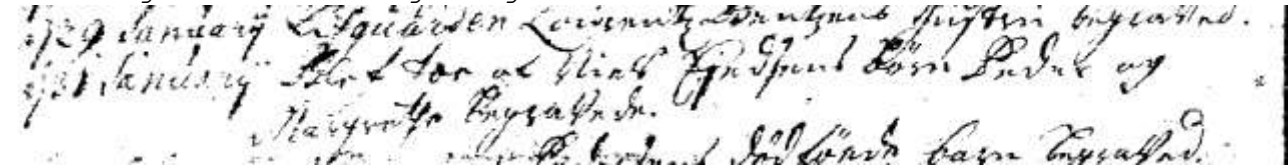 29 January Lifguarden Laurentz Bentzens Hustru begraved.
31 January Blef toe af Niels Börn Peder og
Margrethe Begravede.
dödföede barn Begraved.